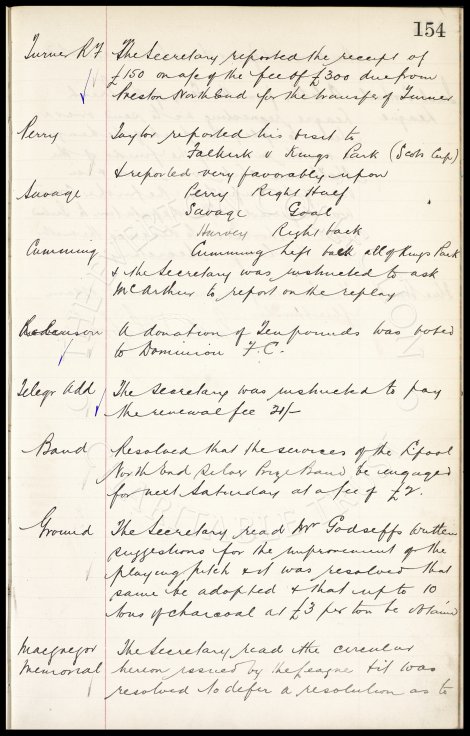 154
Turner R F The Secretary reported the receipt of
£150 on a/c of the fee of £300 due from
Preston North End for the transfer of Turner
Perry Taylor reported his visit to
Falkirk v Kings Park (Scots Cup)
& reported very favorably upon
Savage Perry Right Half
Savage Goal
Harvey Right back
Cumming Cumming Left back all of Kings Park
& the Secretary was instructed to ask
McArthur to report on the replay
A donation of Ten pounds was voted
to Dominion F.C.
Telegr Add The Secretary was instructed to pay
the renewal fee 21/-
Band Resolved that the services of the L'pool
North End Silver Prize Band be engaged
for next Saturday at a fee of £2.
Ground The Secretary read Mr Godseffs written
suggestions for the improvement of the
playing pitch & it was resolved that
same be adopted & that up to 10
tons of charcoal at £3 per ton be obtained
Macgregor The Secretary read the circular
Memorial hereon issued by the League & it was
resolved to defer a resolution as to